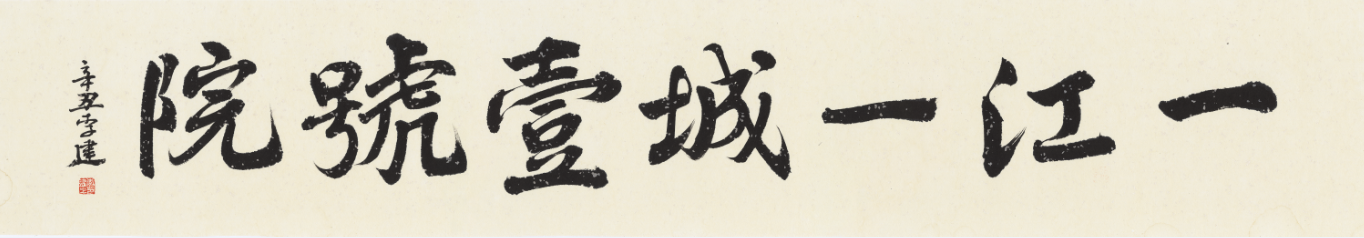 一江一城壹號院
辛丑李建